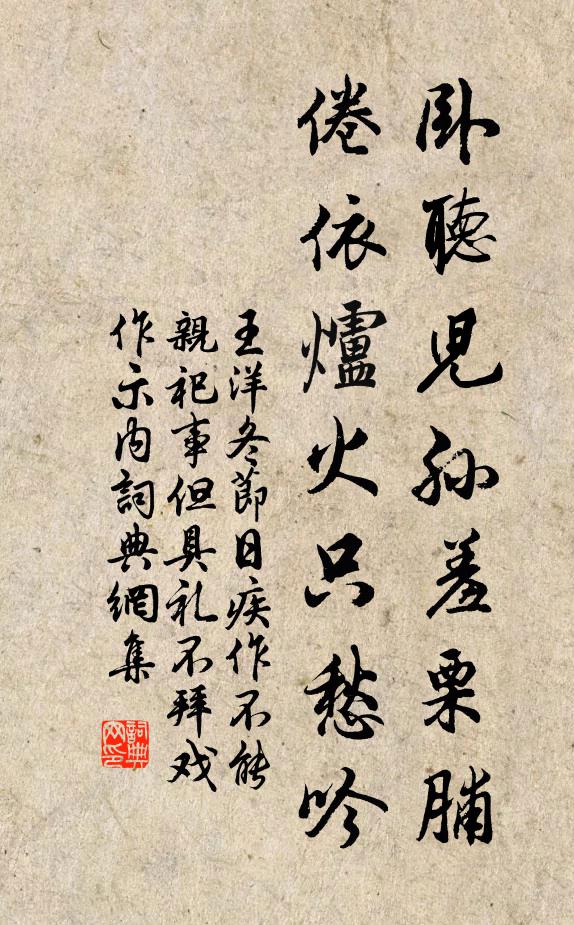 卧聽児孙羞栗脯
倦依爐火只愁吟
王洋冬節日疾作不能
親祀事但具礼不拜戏
作示内詞典網集
詞典网印